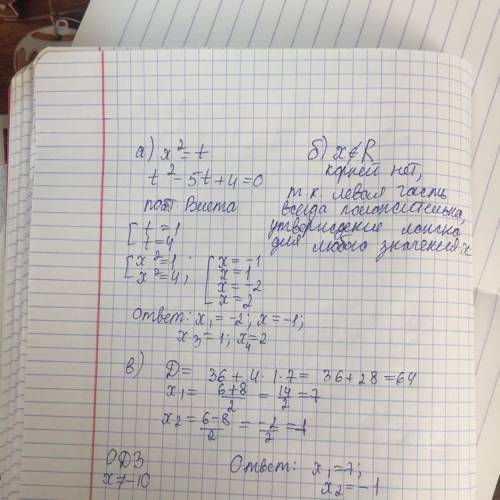 а) x² = t
t² - 5t + 4 = 0
по т. Виета
[ t = 1
t = 4
[ x² = 1
x² = 4 ;
[ x = -1
x = 1
x = -2
x = 2
Ответ: x₁ = -2; x = -1;
x₃ = 1; x₄ = 2
б) x ∉ R
корней нет,
т.к. левая часть
всегда положительна,
утверждение ложно
для любого значения x
в) D = 36 + 4 · 1 · 7 = 36 + 28 = 64
x₁ = 6+8/2 = 14/2 = 7
x₂ = 6-8/2 = -2/2 = -1
ОДЗ
x ≠ -10
Ответ: x₁ = 7;
x₂ = -1